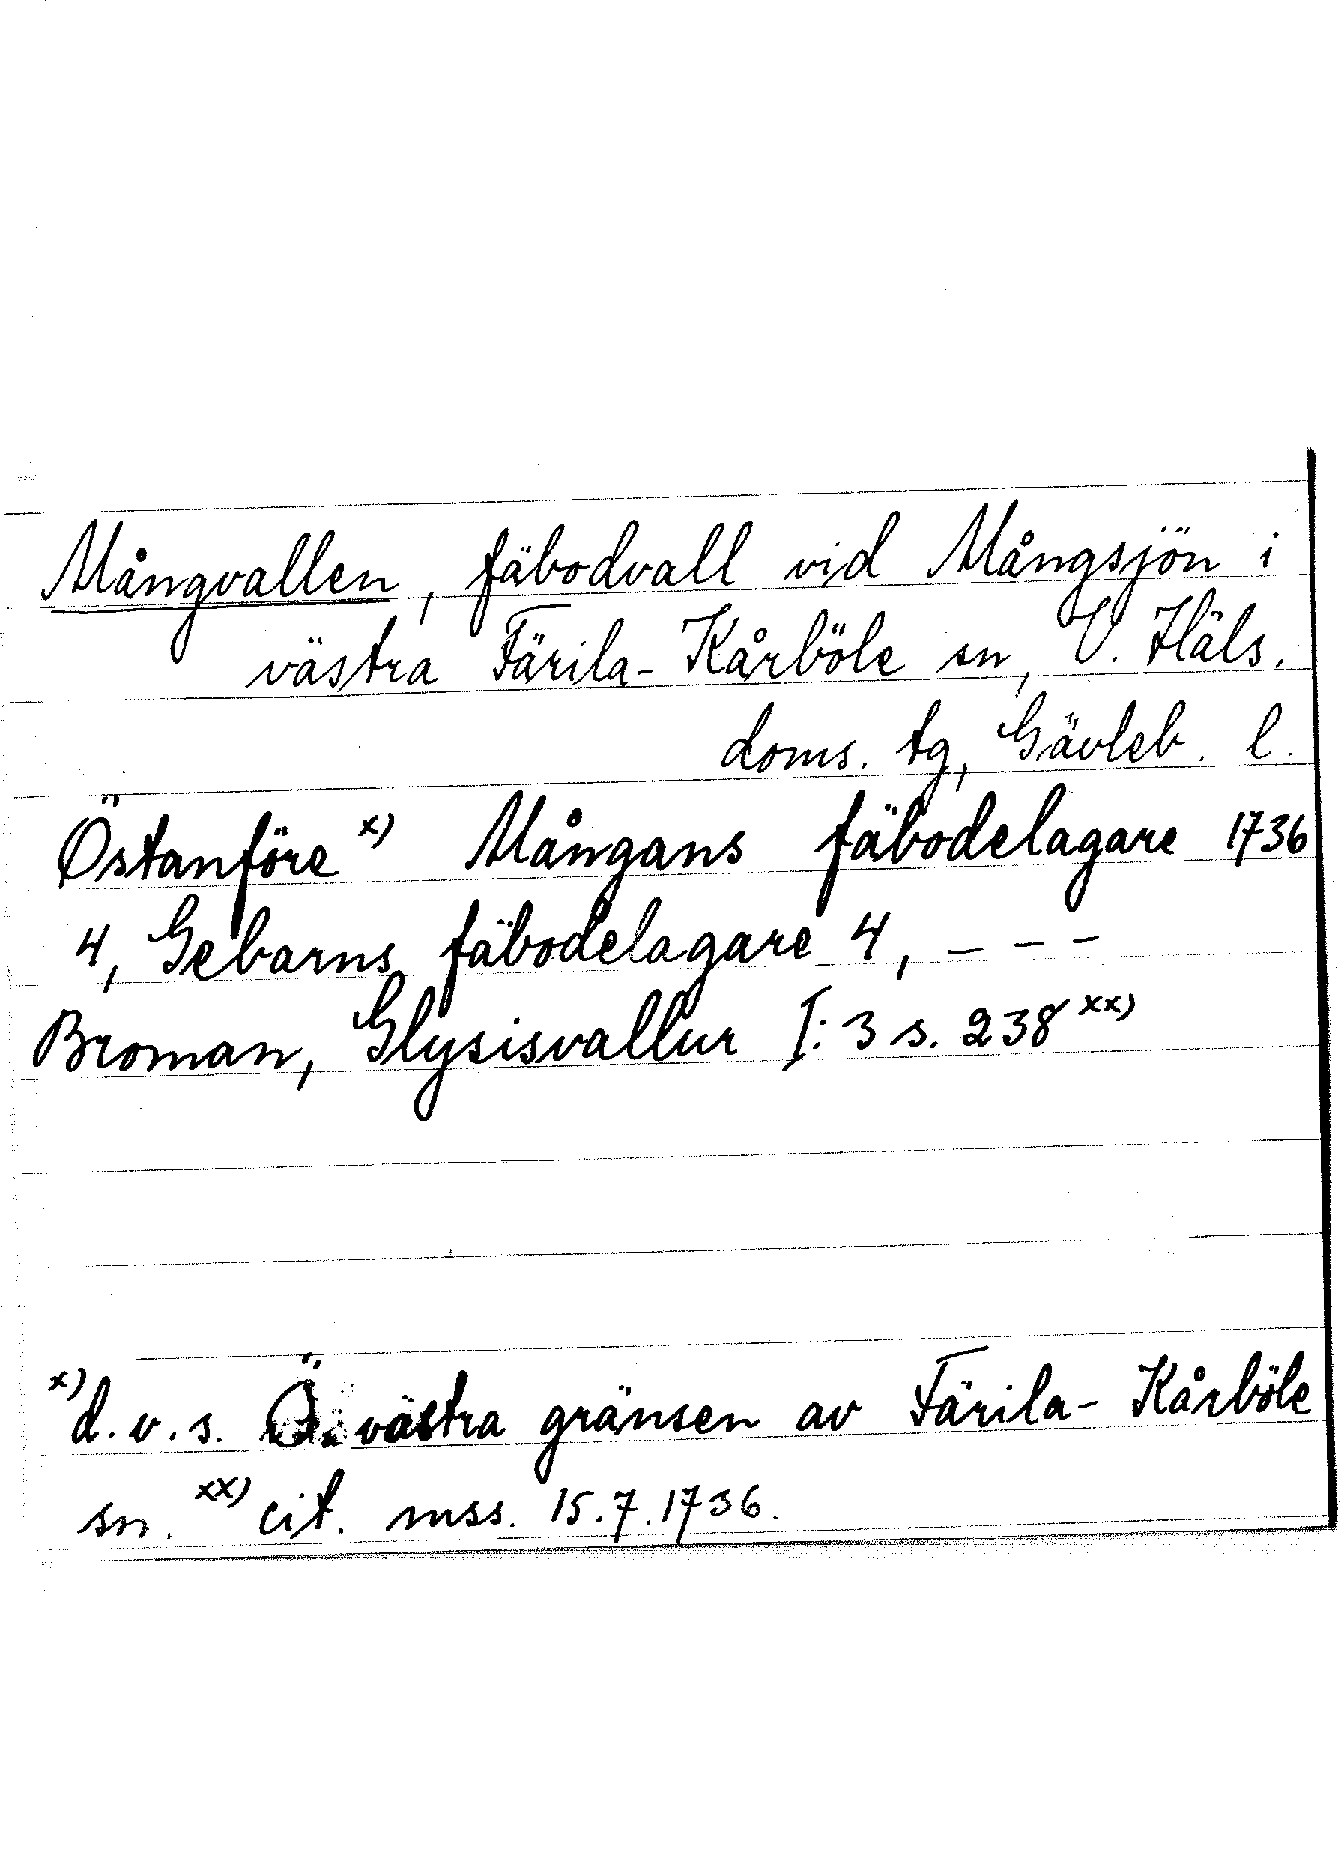 Mångvallen, fäbodvall vid Mångsjön i
västra Färila-Kårböle sn, V. Häls.
doms. tg, Gävleb. l.
Östanföre x) Mångans fäbodelagare 1736
4, Gebarns fäbodelagare 4, - - -
Broman, Glysisvallur I: 3 s. 238 xx)
x) d.v.s. Ö. västra gränsen av Färila-Kårböle
sn. xx) cit. mss. 15.7.1736.